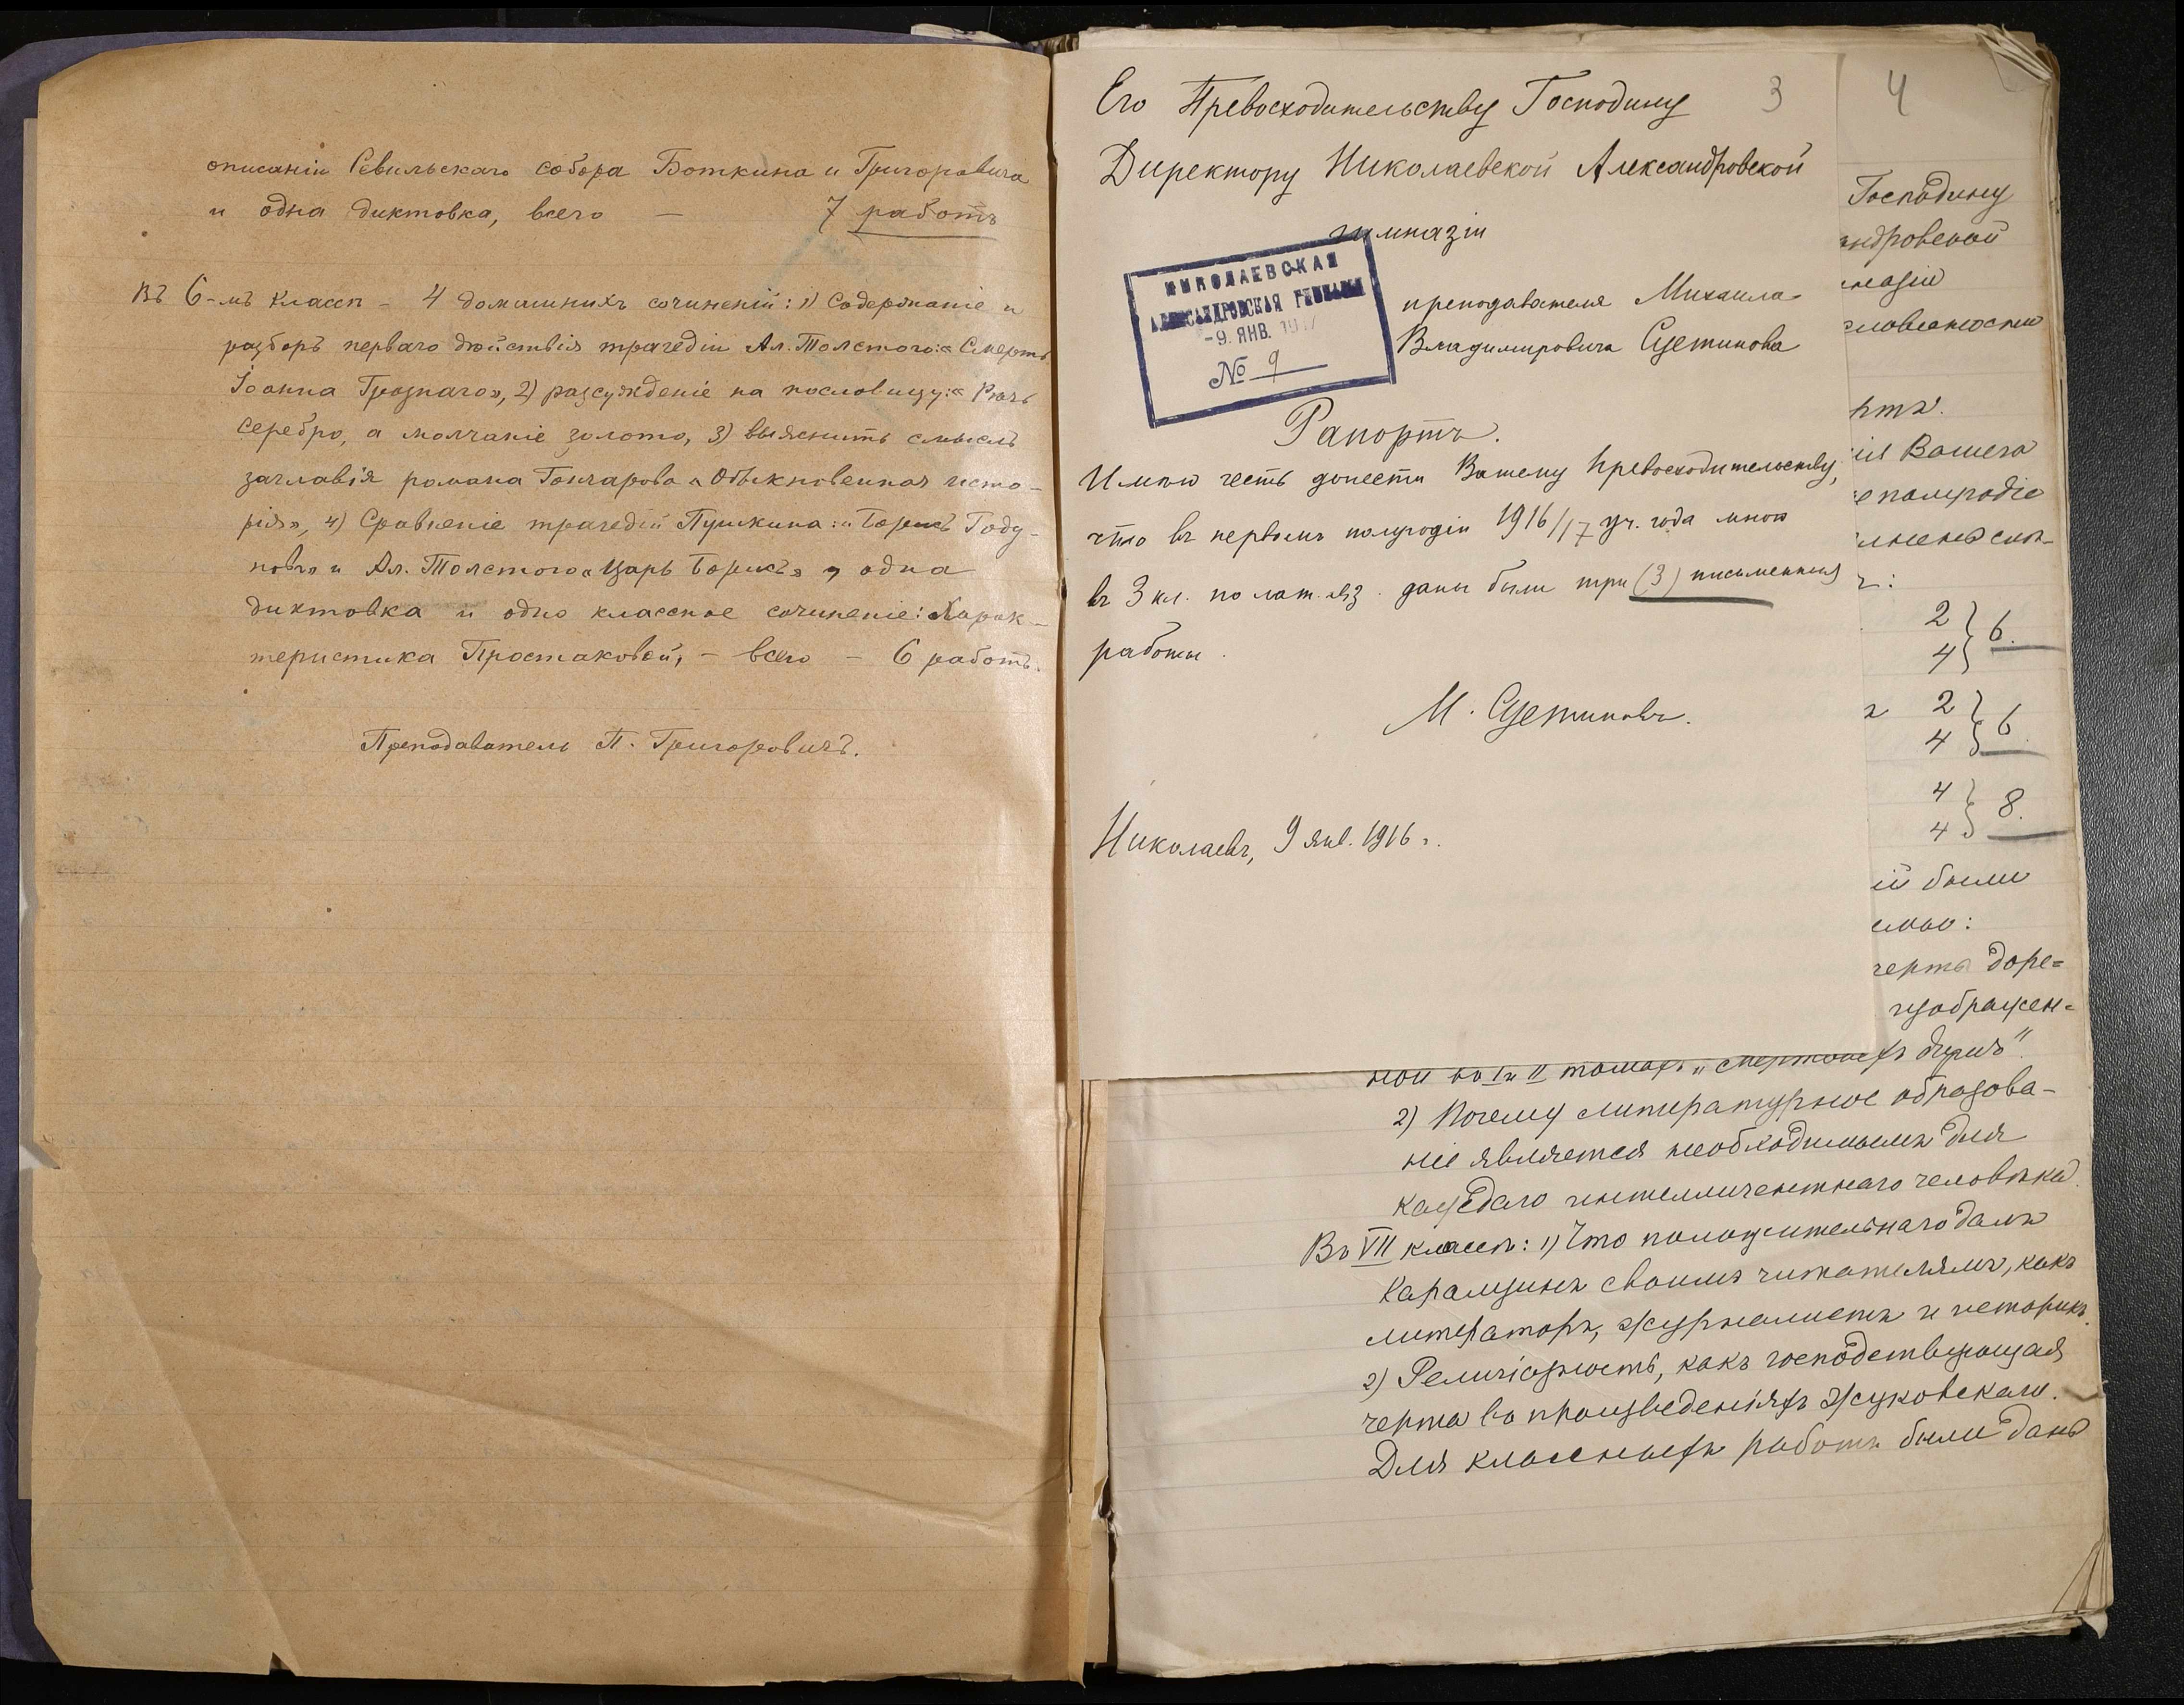 описанiи Севильскаго собора Боткина и Григоровича
и одна диктовка, всего — 7 работъ
Въ 6-мъ классѣ - 4 домашнихъ сочиненiй: 1) Содержанiе и
разборъ перваго дѣйствiя трагедiи Ал. Толстого: «Смерть
Iоанна Грознаго», 2) разсужденiе на пословицу: «Рѣчь
серебро, а молчанiе золото, 3) выяснить смыслъ
заглавiя романа Гончарова «Обыкновенная исто-
рiя», 4) Сравненiе трагедiй Пушкина: «Борисъ Году-
новъ» и Ал. Толстого «Царь Борисъ», одна
диктовка и одно классное сочиненiе: Харак-
теристика Простаковой, - всего - 6 работъ.
Преподаватель П. Григоровичъ.
3
Его Превосходительству Господину
Директору Николаевской Александровской
гимназiи
НИКОЛАЕВСКАЯ
АЛЕКСАНДРОВСКАЯ ГИМНАЗIЯ
-9. ЯНВ. 1917
№ 9
преподавателя Михаила
Владимировича Щетинова
Рапортъ.
Имѣю честь донести Вашему Превосходительству,
что въ первомъ полугодiи 1916/17 уч. года мною
въ 3 кл. по лат. яз. даны были три (3) письменныя
работы.
М. Щетиновъ.
Николаевъ, 9 янв. 1916 г.
4
Господину
андровской
мназiи
словесности
ртъ.
iя Вашего
е полугодiе
ъ:
2
4 } 6.
ъ 2
4 } 6.
4
4 } 8.
iй были
черты доре=
изображен=
ной въ I и II томахъ „Мертвыхъ душъ".
2) Почему литературное образова-
нiе является необходимымъ для
каждаго интеллигентнаго человѣка.
Въ VII классѣ: 1) Что положительнаго далъ
Карамзинъ своимъ читателямъ, какъ
литераторъ, журналистъ и историкъ.
2) Религiозность, какъ господствующая
черта въ произведенiяхъ Жуковскаго.
Для классныхъ работъ были даны